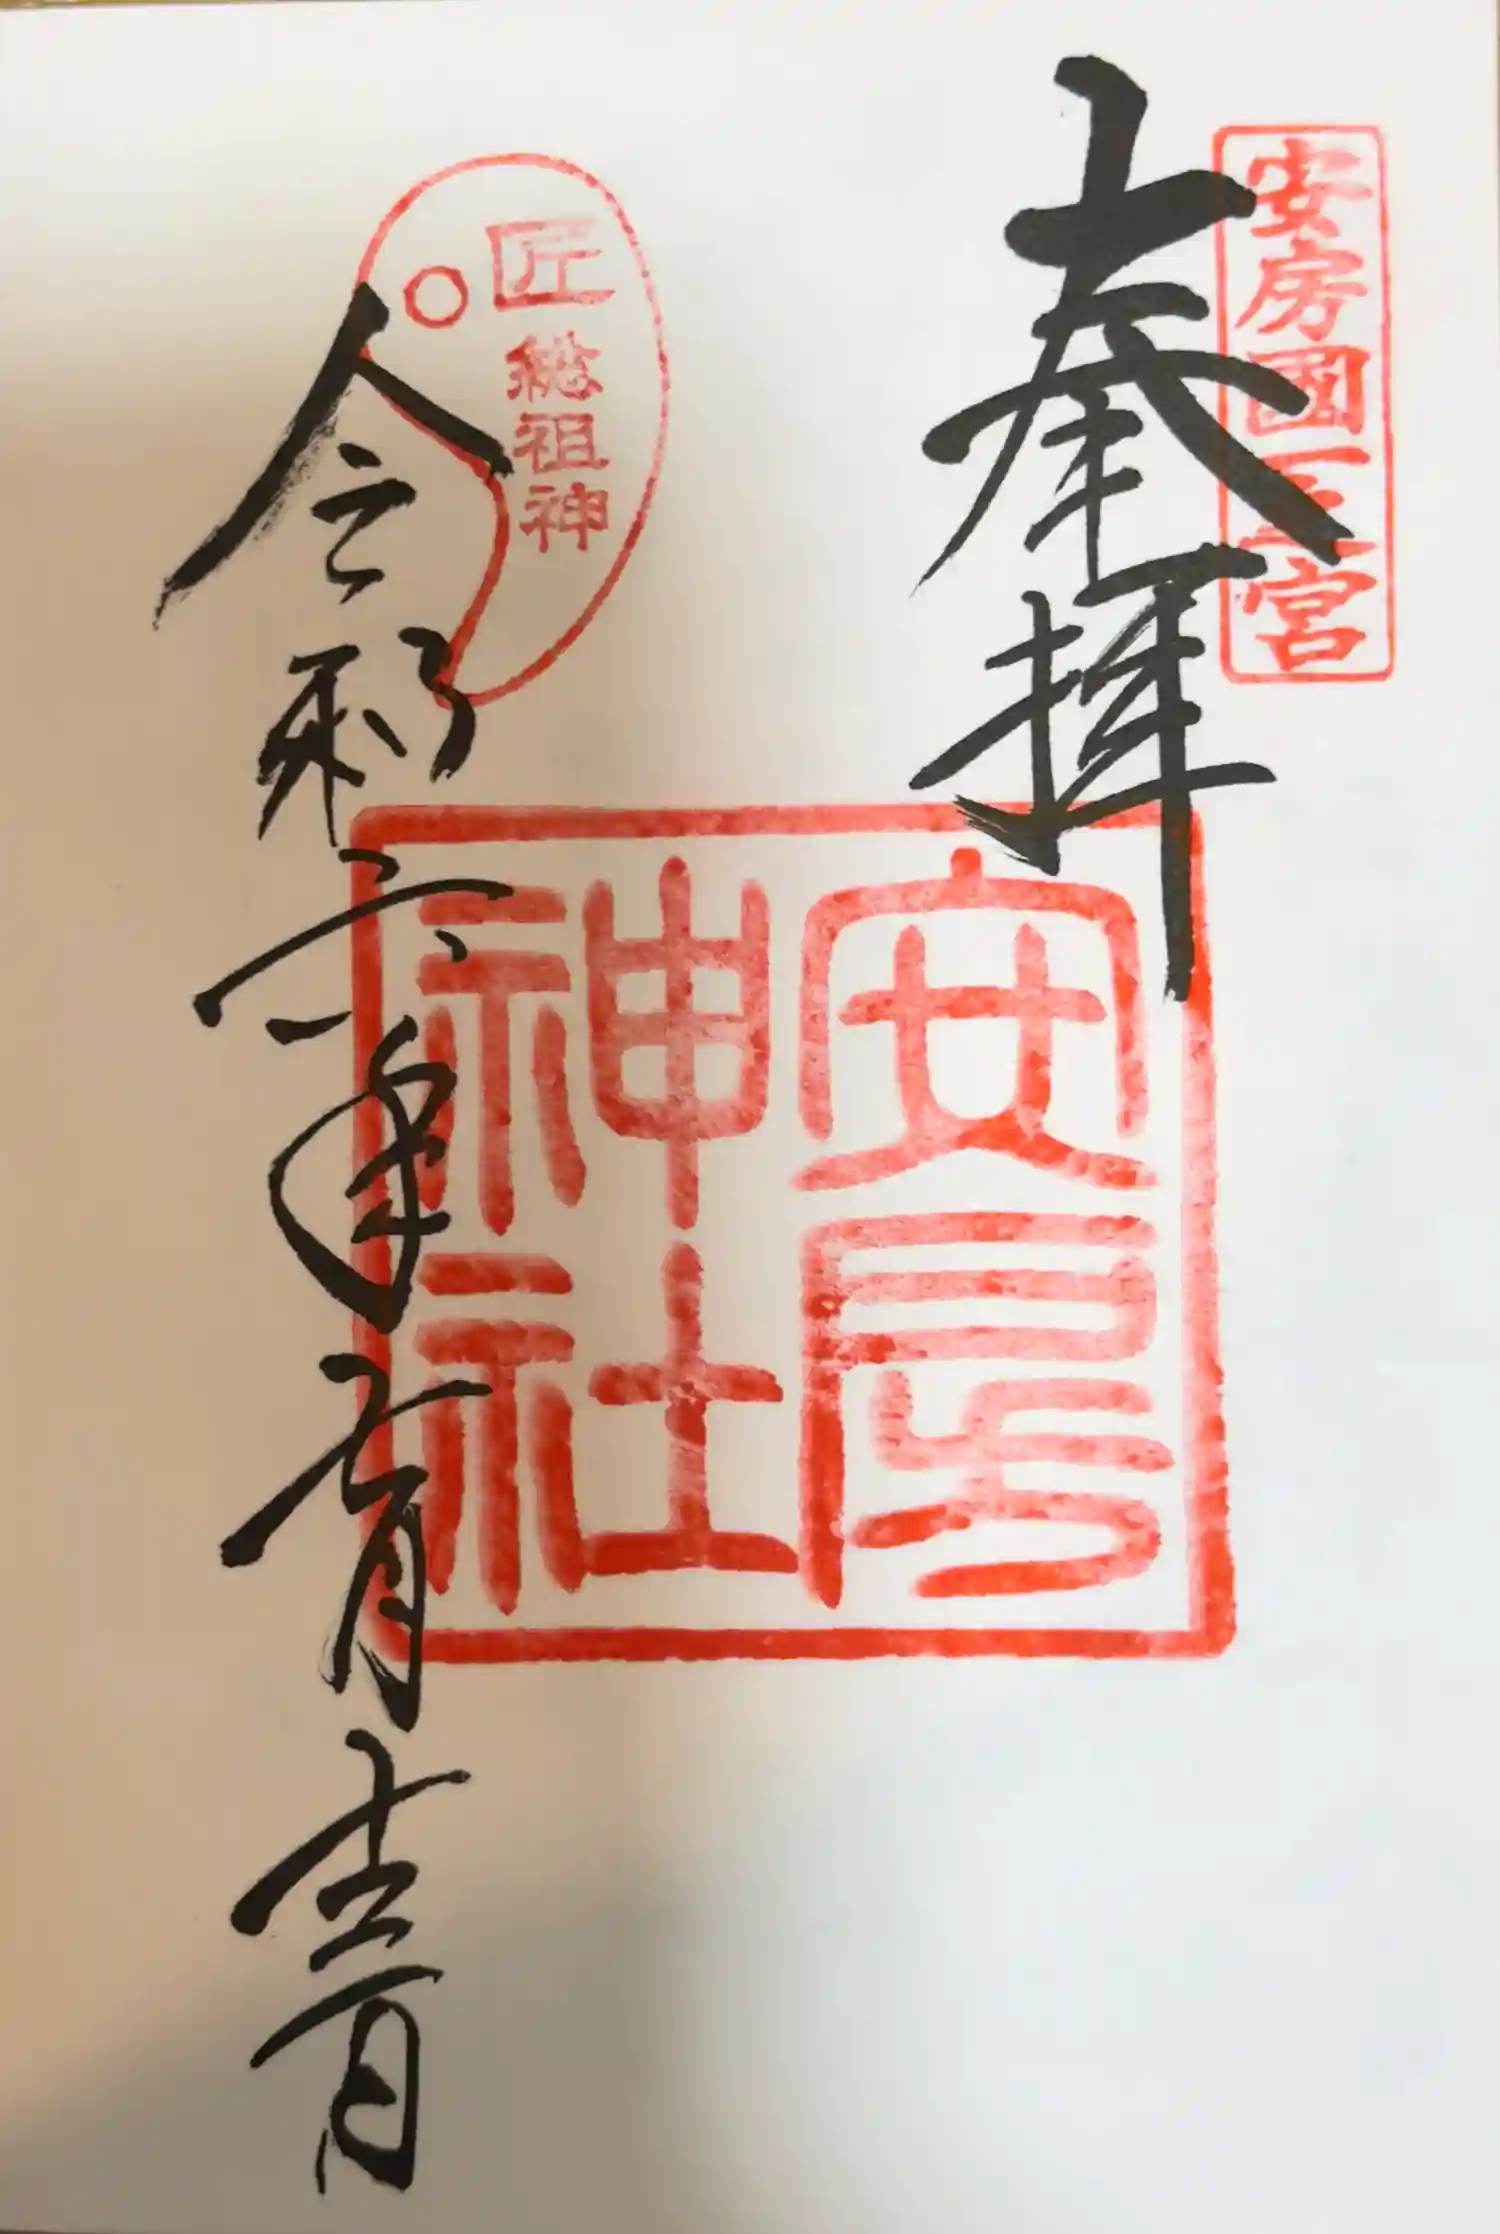 安房國一之宮
奉拝
安房
神社
匠
総祖神
令和六年七月十三日